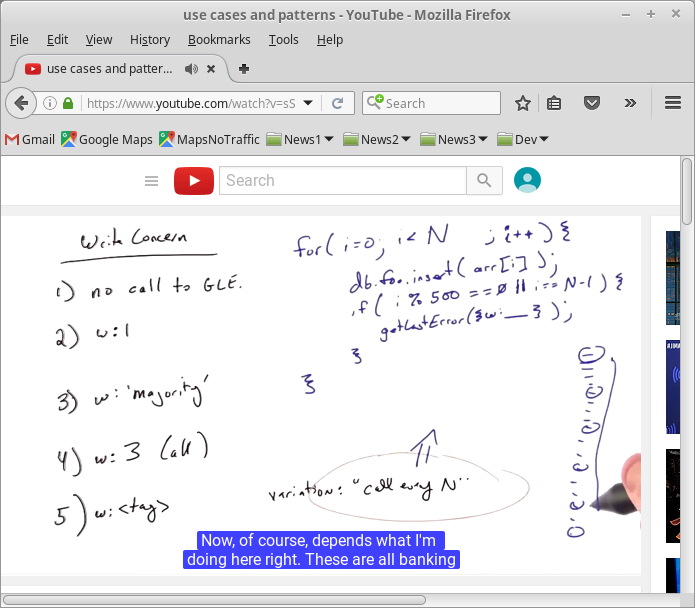 use cases and patterns - YouTube - Mozilla Firefox
File Edit View History Bookmarks Tools Help
use cases and patter...
https://www.youtube.com/watch?v=sS
Search
Gmail Google Maps MapsNoTraffic News1 News2 News3 Dev
Search
Write Concern
1) no call to GLE.
2) w:1
3) w: 'majority'
4) w: 3 (all)
5) w: <tag>
for( i=0; i< N ; i++ ) {
db.foo.insert( arr[i] );
if( i % 500 == 0 || i == N-1 ) {
getLastError({w:__});
}
}
variation: "call every N"
Now, of course, depends what I'm
doing here right. These are all banking